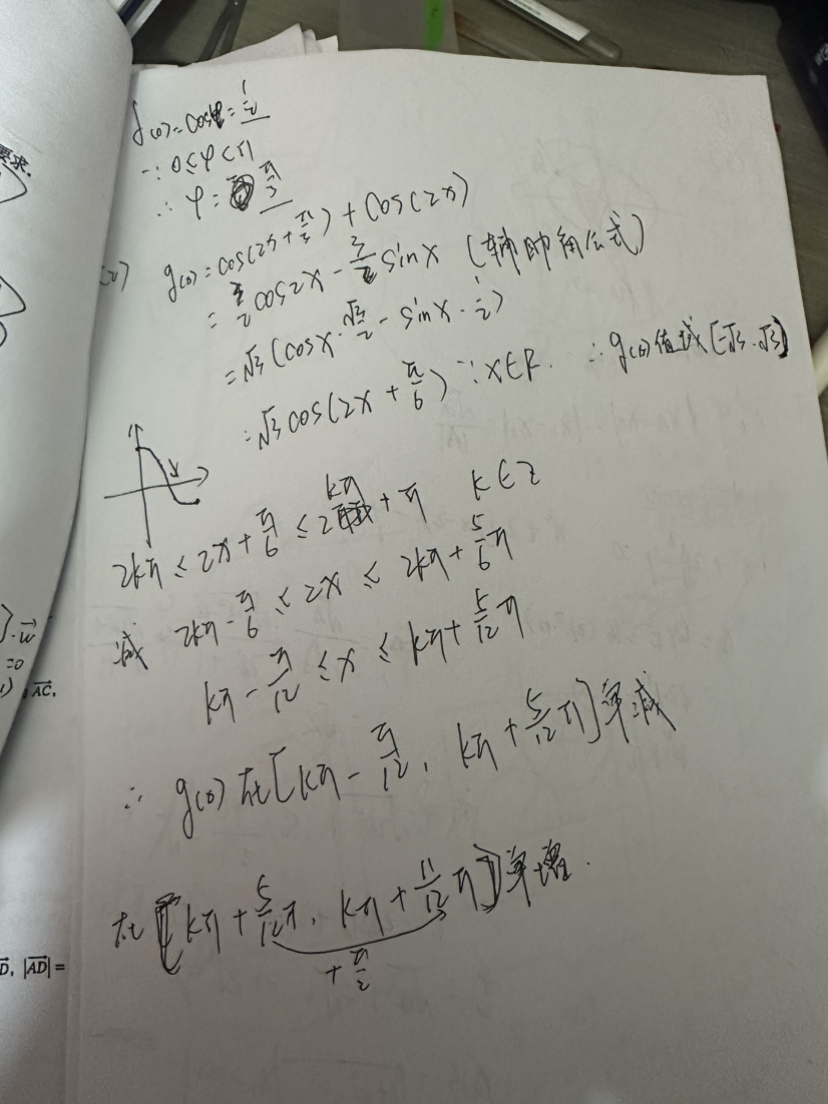 f(0)=cosφ=1/2
∵ 0≤φ<π
∴ φ= π/3
(2) g(x)=cos(2x+π/3)+cos(2x)
= 3/2 cos2x - √3/2 sinx (辅助角公式)
=√3(cosx·√3/2 - sinx·1/2)
=√3cos(2x+π/6) ∵x∈R. ∴g(x)值域[-√3,√3]
2kπ≤2x+π/6≤2kπ+π k∈Z
减 2kπ-π/6≤2x≤2kπ+5/6π
kπ-π/12≤x≤kπ+5/12π
∴ g(x)在[kπ-π/12, kπ+5/12π]单减
在[kπ+5/12π, kπ+11/12π]单增.
+π/2
要求.
}·w
=0
AC,
D, |AD|=